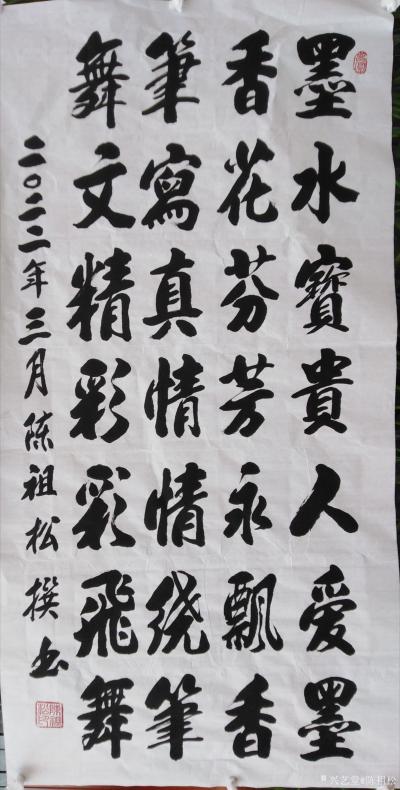 墨水寶貴人愛墨
香花芬芳永飄香
筆寫真情情绕筆
舞文精彩彩飛舞
二〇二二年三月陈祖松撰书
兴艺堂@陈祖松